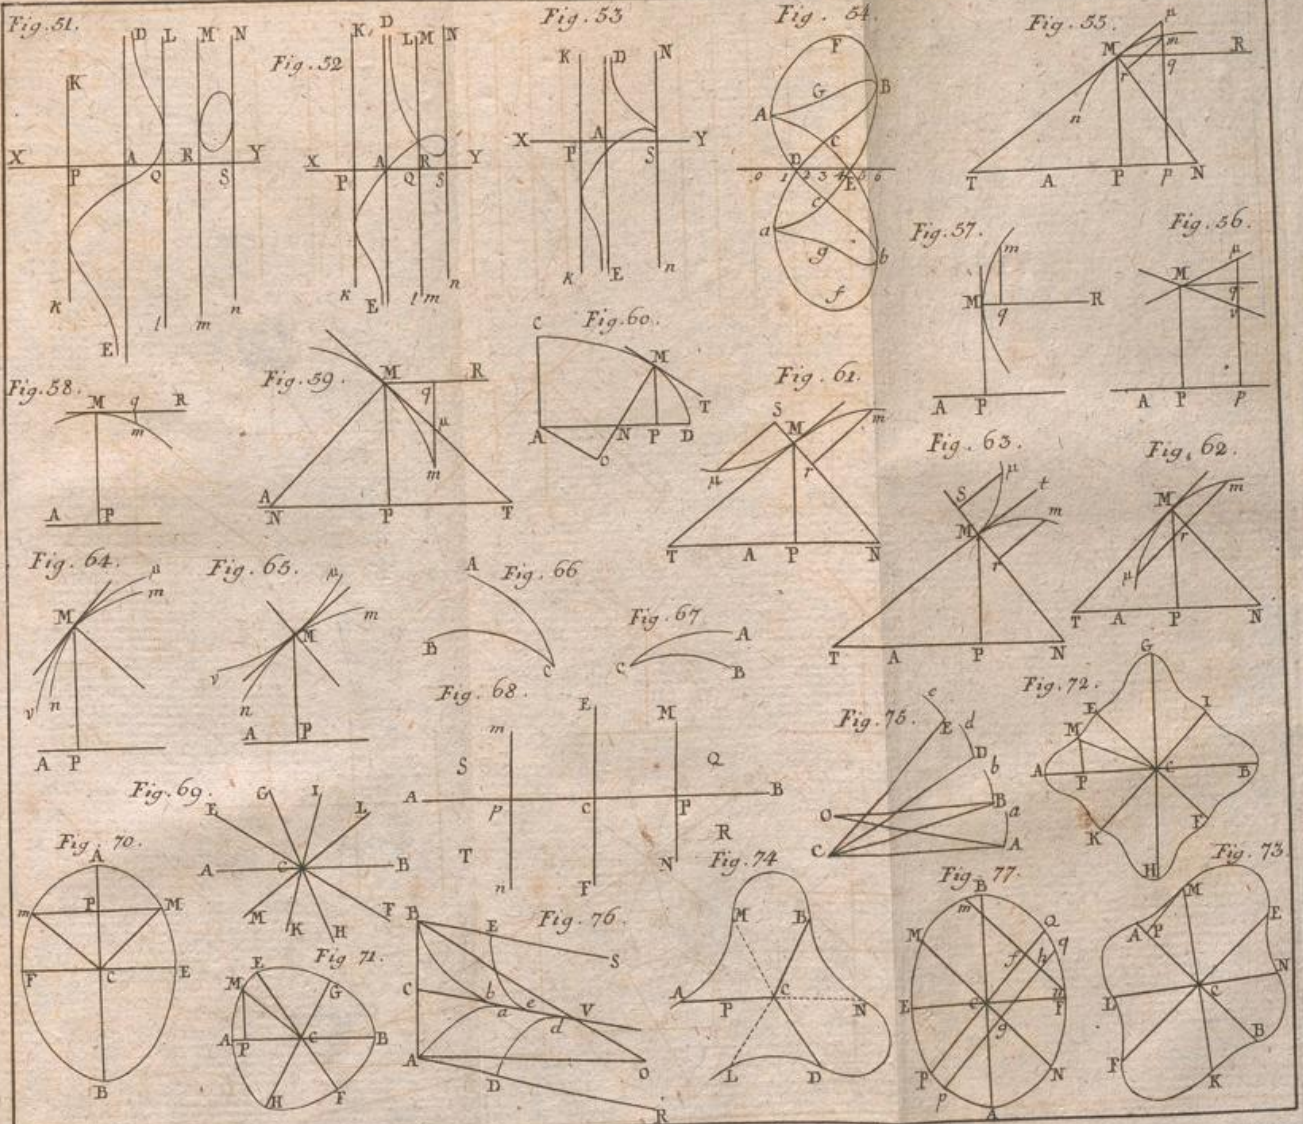 Fig. 51.
K D L M N
X P A Q R S Y
k E l m n
Fig. 52
K D L M N
X P A Q R S Y
k E l m n
Fig. 53
K D N
X P A S Y
k E n
Fig. 54.
F
G B
A
C
D
0 1 2 3 4 5 6
E
c
a g b
f
Fig. 55.
μ
M m R
r q
n
T A P p N
Fig. 57.
m
M q R
A P
Fig. 56.
μ
M
q
v
A P p
Fig. 58.
M q R
m
A P
Fig. 59.
M R
q
μ
m
A
N P T
Fig. 60.
C
M
T
A N P D
O
Fig. 61.
S M m
μ r
T A P N
Fig. 63.
S μ t
M m
r
T A P N
Fig. 62.
M m
r
μ
T A P N
Fig. 64.
μ
M m
v n
A P
Fig. 65.
μ
M m
v n
A P
Fig. 66
A
B C
Fig. 67
A
C B
Fig. 68.
m E M
S Q
A p C P B
T R
n F N
Fig. 69.
G I
E L
A C B
M K H F
Fig. 70.
A
m P M
F C E
B
Fig. 71.
E
M G
A P C B
H F
Fig. 72.
G
E I
M
A P C B
K F
H
Fig. 75.
e
E d
D
b
O B a
C A
Fig. 76.
B E
S
C b e
a V
d
A O
D
R
Fig. 74
M B
A P C N
L D
Fig. 77.
B
m Q
M q
f h
E C m
F
g
P N
p
A
Fig. 73.
M
A P E
N
L C
B
F K